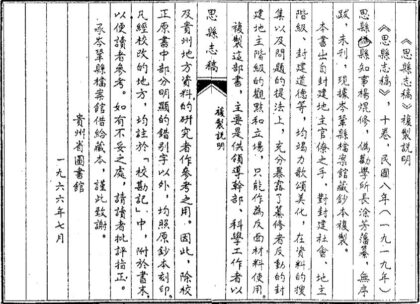 《思縣志稿》複製說明
《思縣志稿》,十卷,民國八年(一九一九年)
思縣縣知事楊焜修,僞勸學所長涂芳藩纂,無序
跋,未刊,現據岑鞏縣檔案館藏鈔本複製。
本書出自封建地主官僚之手,對封建社會、地主
階級、封建道德等,均竭力歌頌美化,在資料的搜
集以及問題的提法上,充分暴露了纂修者反動的封
建地主階級的觀點和立場,只能作為反面材料使用
複製這部書,主要是供領導幹部、科學工作者以
思縣志稿
複製說明
及貴州地方資料的研究者作參考之用。因此,除校
正原書中部分明顯的錯別字以外,均照原鈔本刻印。
凡經校改的地方,均註於「校勘記」中,附於書末,
以便讀者參考。如有不妥之處,請讀者批評指正。
承岑鞏縣檔案館借給藏本,謹此致謝。
貴州省圖書館
一九六六年七月